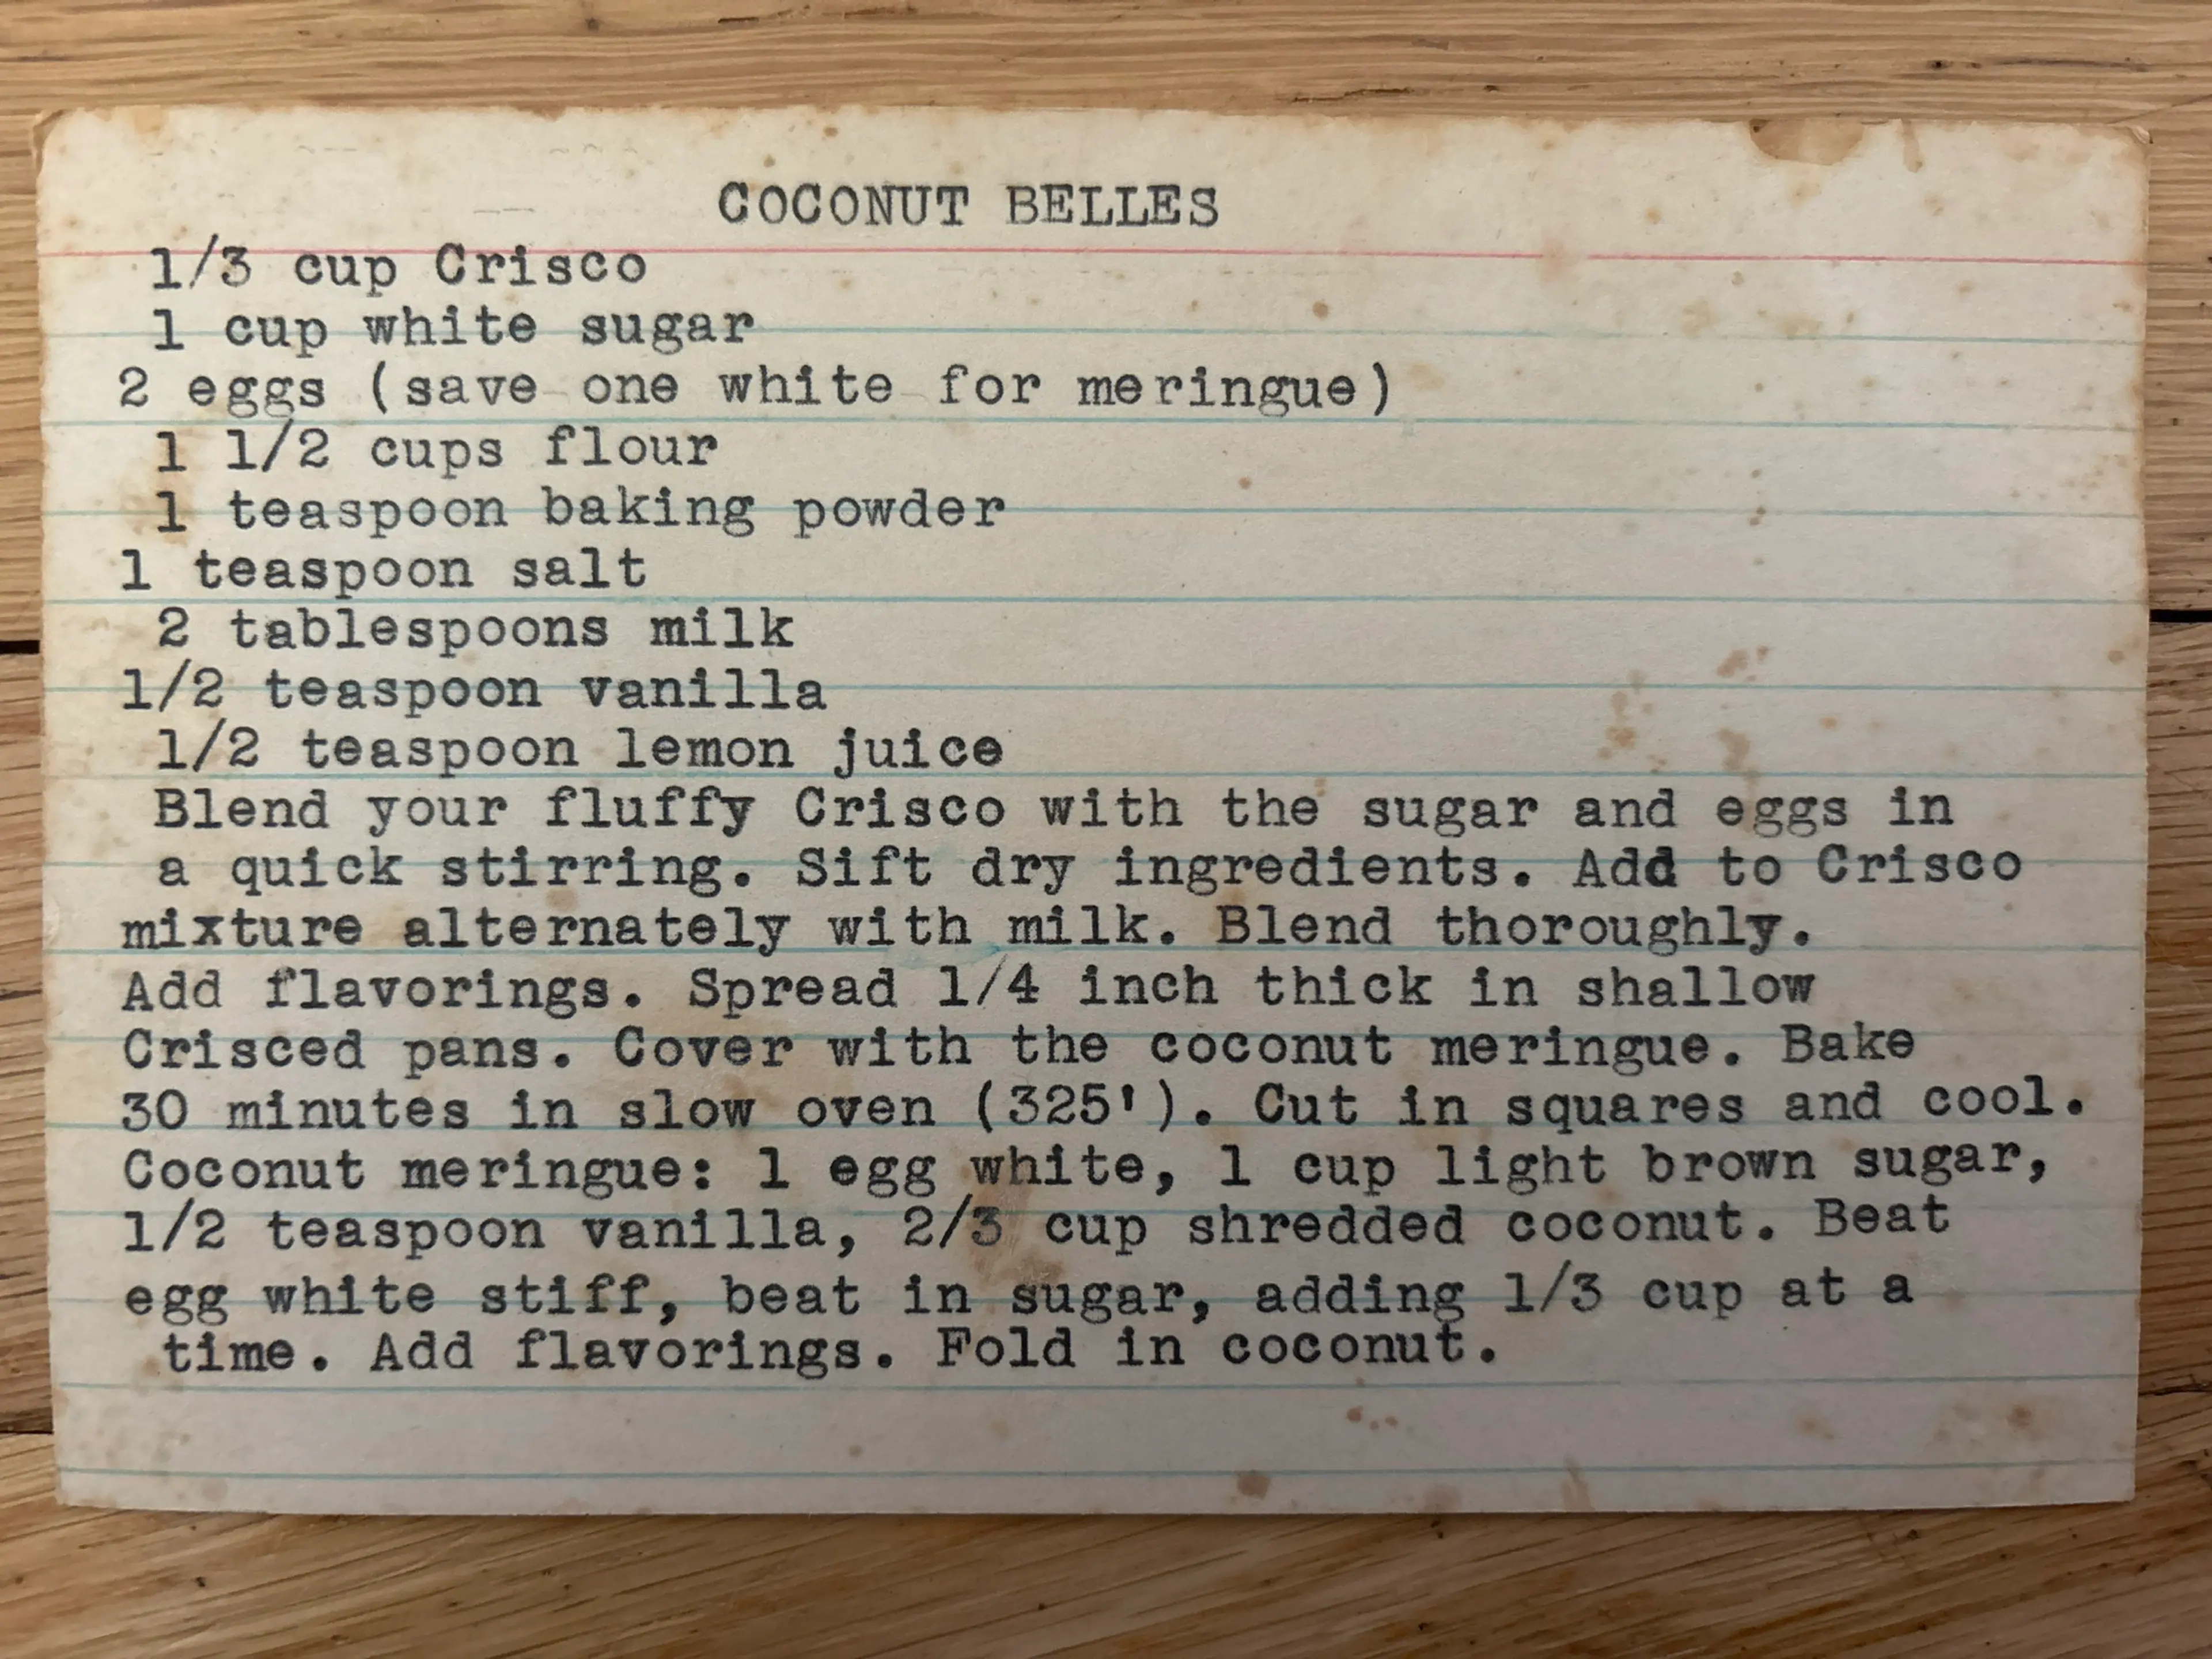 COCONUT BELLES
1/3 cup Crisco
1 cup white sugar
2 eggs (save one white for meringue)
1 1/2 cups flour
1 teaspoon baking powder
1 teaspoon salt
2 tablespoons milk
1/2 teaspoon vanilla
1/2 teaspoon lemon juice
Blend your fluffy Crisco with the sugar and eggs in
a quick stirring. Sift dry ingredients. Add to Crisco
mixture alternately with milk. Blend thoroughly.
Add flavorings. Spread 1/4 inch thick in shallow
Crisced pans. Cover with the coconut meringue. Bake
30 minutes in slow oven (325'). Cut in squares and cool.
Coconut meringue: 1 egg white, 1 cup light brown sugar,
1/2 teaspoon vanilla, 2/3 cup shredded coconut. Beat
egg white stiff, beat in sugar, adding 1/3 cup at a
time. Add flavorings. Fold in coconut.